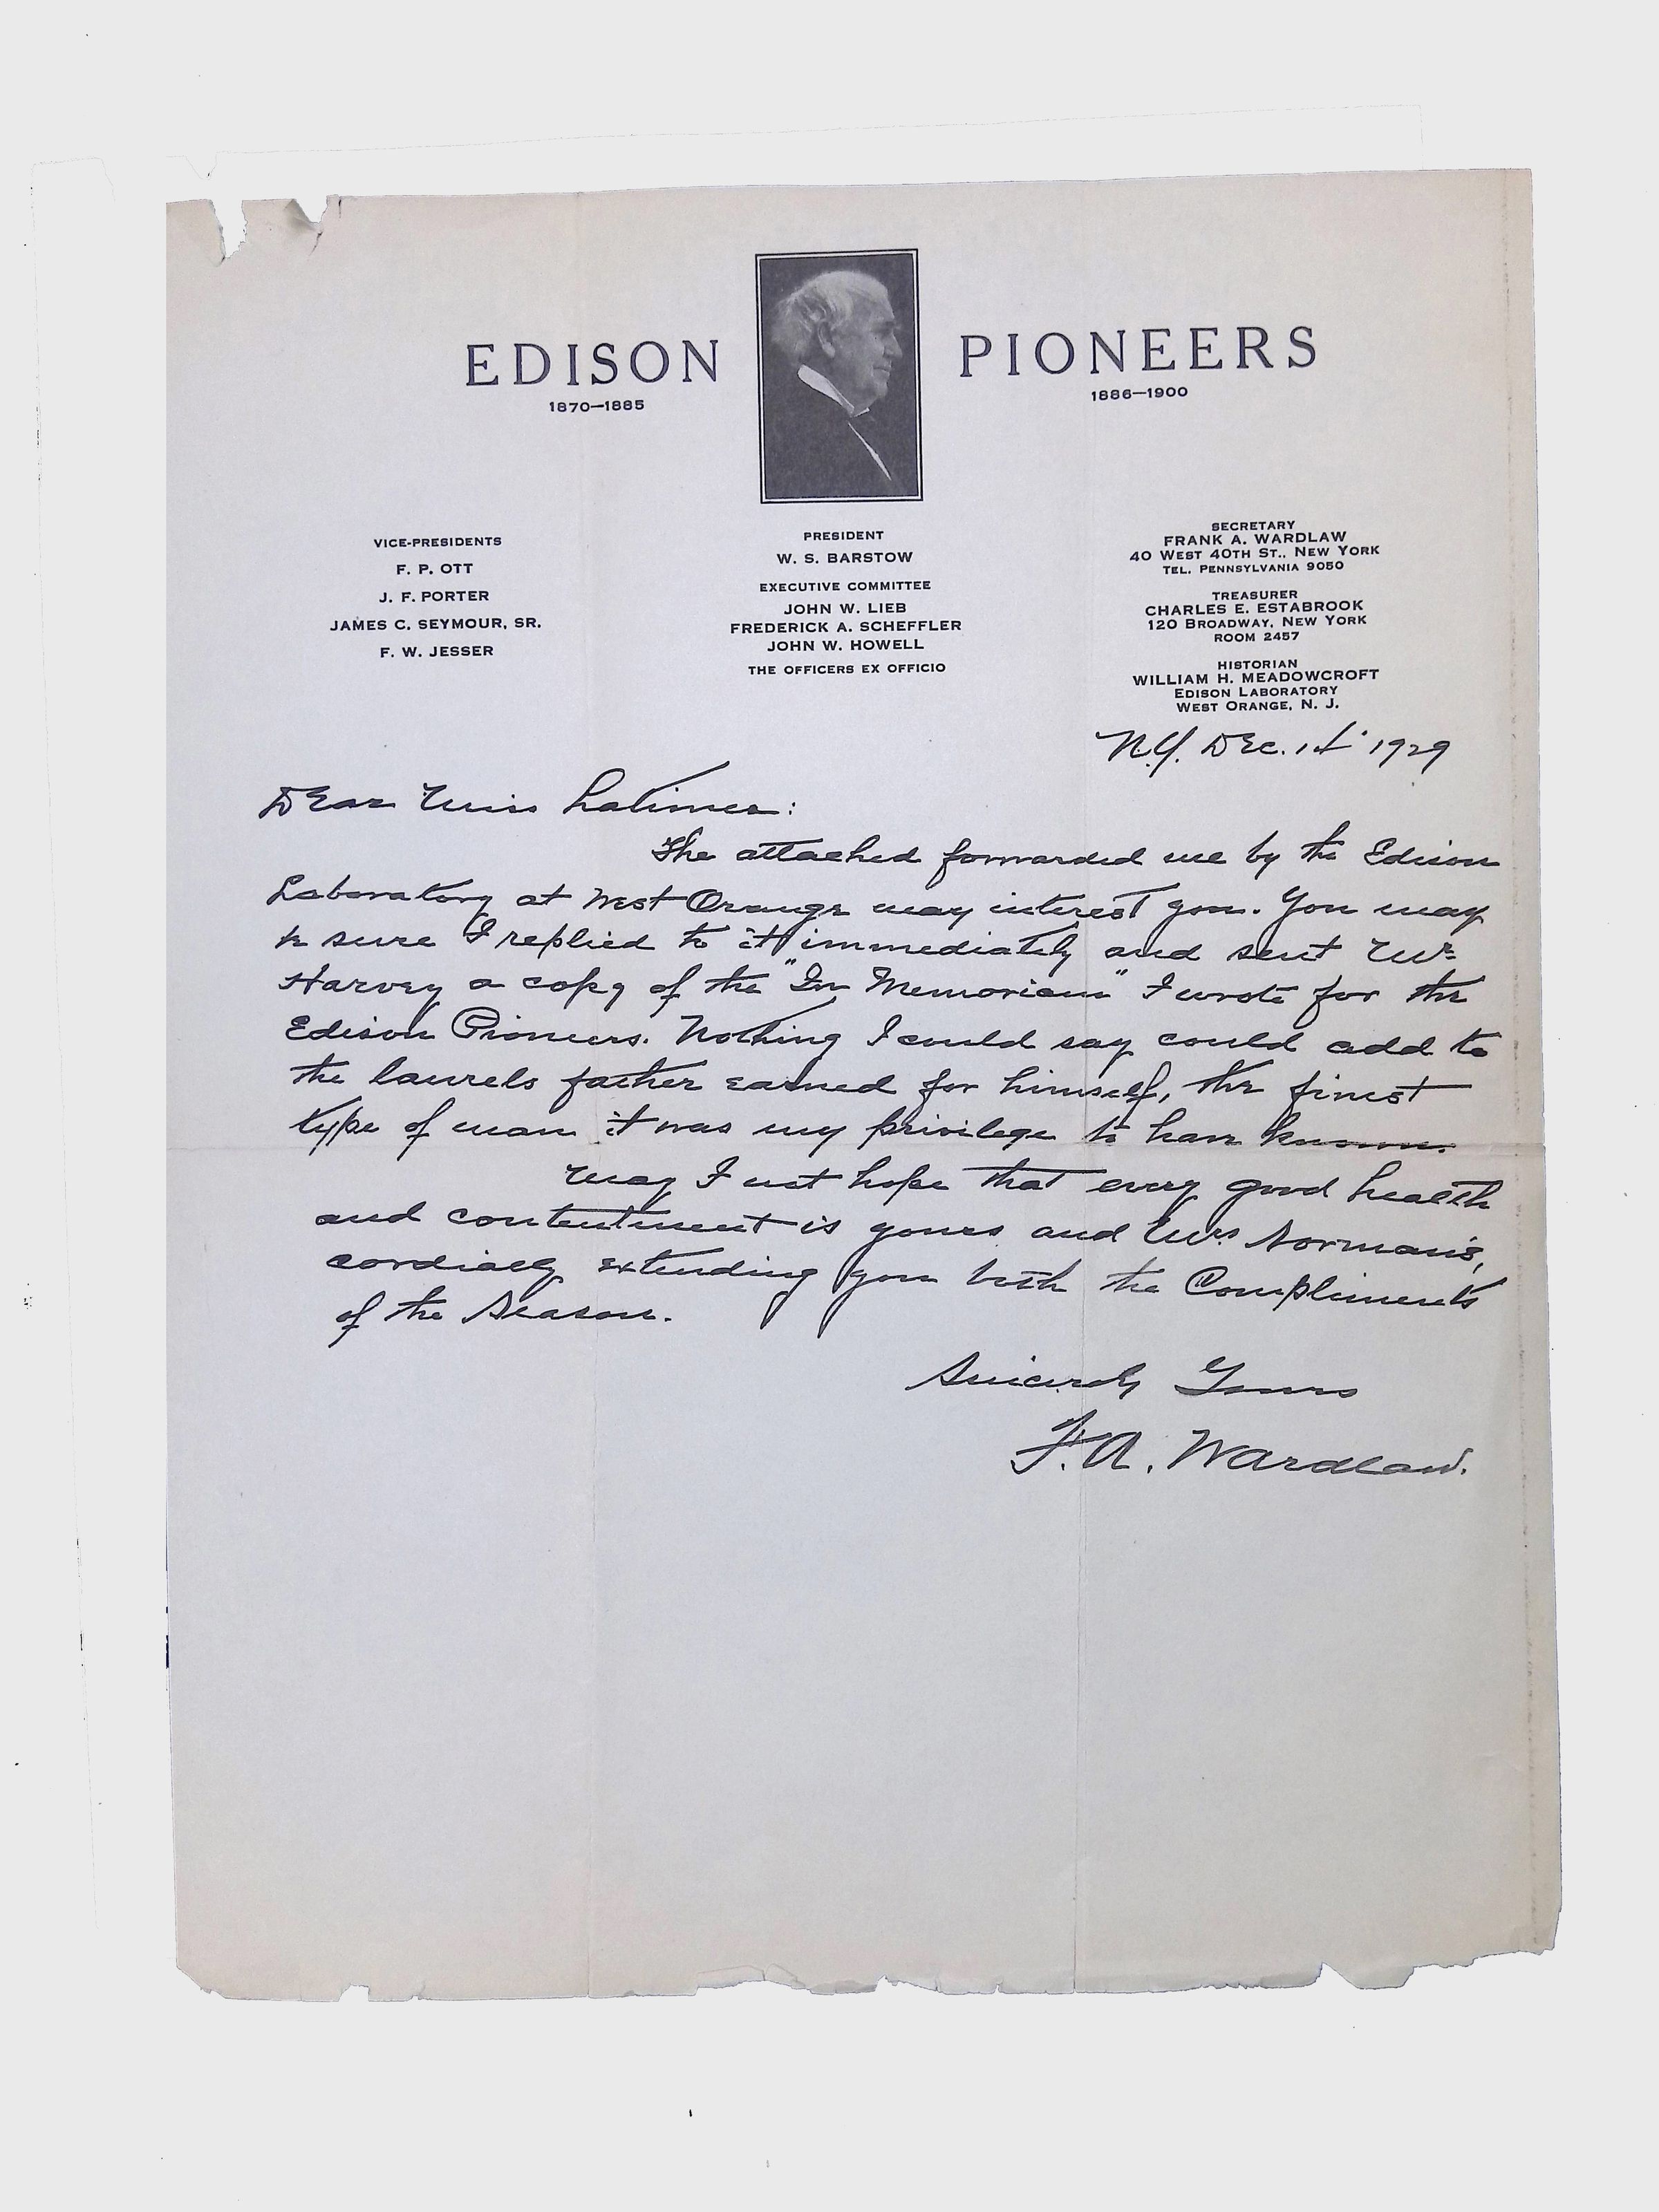 EDISON PIONEERS
1870—1885 1886—1900
VICE-PRESIDENTS
F. P. OTT
J. F. PORTER
JAMES C. SEYMOUR, SR.
F. W. JESSER
PRESIDENT
W. S. BARSTOW
EXECUTIVE COMMITTEE
JOHN W. LIEB
FREDERICK A. SCHEFFLER
JOHN W. HOWELL
THE OFFICERS EX OFFICIO
SECRETARY
FRANK A. WARDLAW
40 WEST 40TH ST., NEW YORK
TEL. PENNSYLVANIA 9050
TREASURER
CHARLES E. ESTABROOK
120 BROADWAY, NEW YORK
ROOM 2457
HISTORIAN
WILLIAM H. MEADOWCROFT
EDISON LABORATORY
WEST ORANGE, N. J.
N.Y. Dec. 1929
Dear Miss Latimer:
The attached forwarded me by the Edison
Laboratory at West Orange may interest you. You may
be sure I replied to it immediately and sent Mr
Harvey a copy of the "In Memoriam" I wrote for the
Edison Pioneers. Nothing I could say could add to
the laurels father earned for himself, the finest
type of man it was my privilege to have known.
May I not hope that every good health
and contentment is yours and Mrs Norman's,
cordially extending you both the Compliments
of the Season.
Sincerely Yours
F. A. Wardlaw.